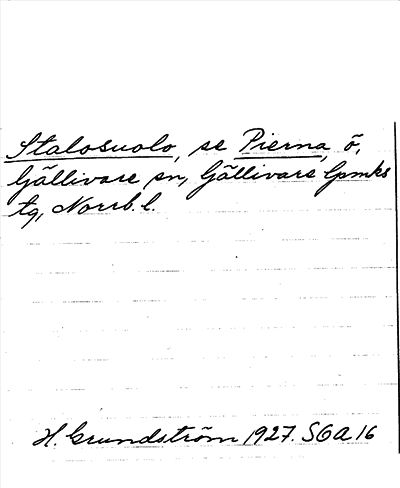 Stalosuolo, se Pierna, ö,
Gällivare sn, Gällivare lpmks
tg, Norrb. l.
H. Grundström 1927. SOA 16